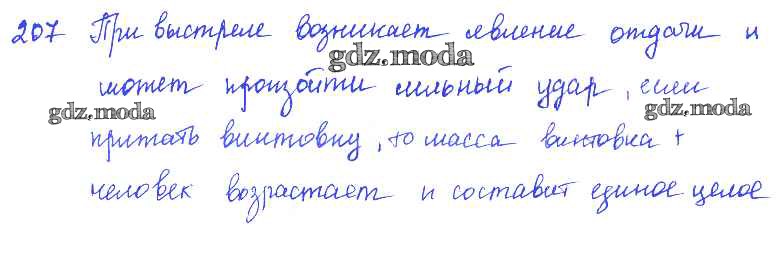 207 При выстреле возникает явление отдачи и
gdz.moda
может произойти сильный удар, если
gdz.moda
gdz.moda
прижать винтовку, то масса винтовка +
человек возрастает и составит единое целое